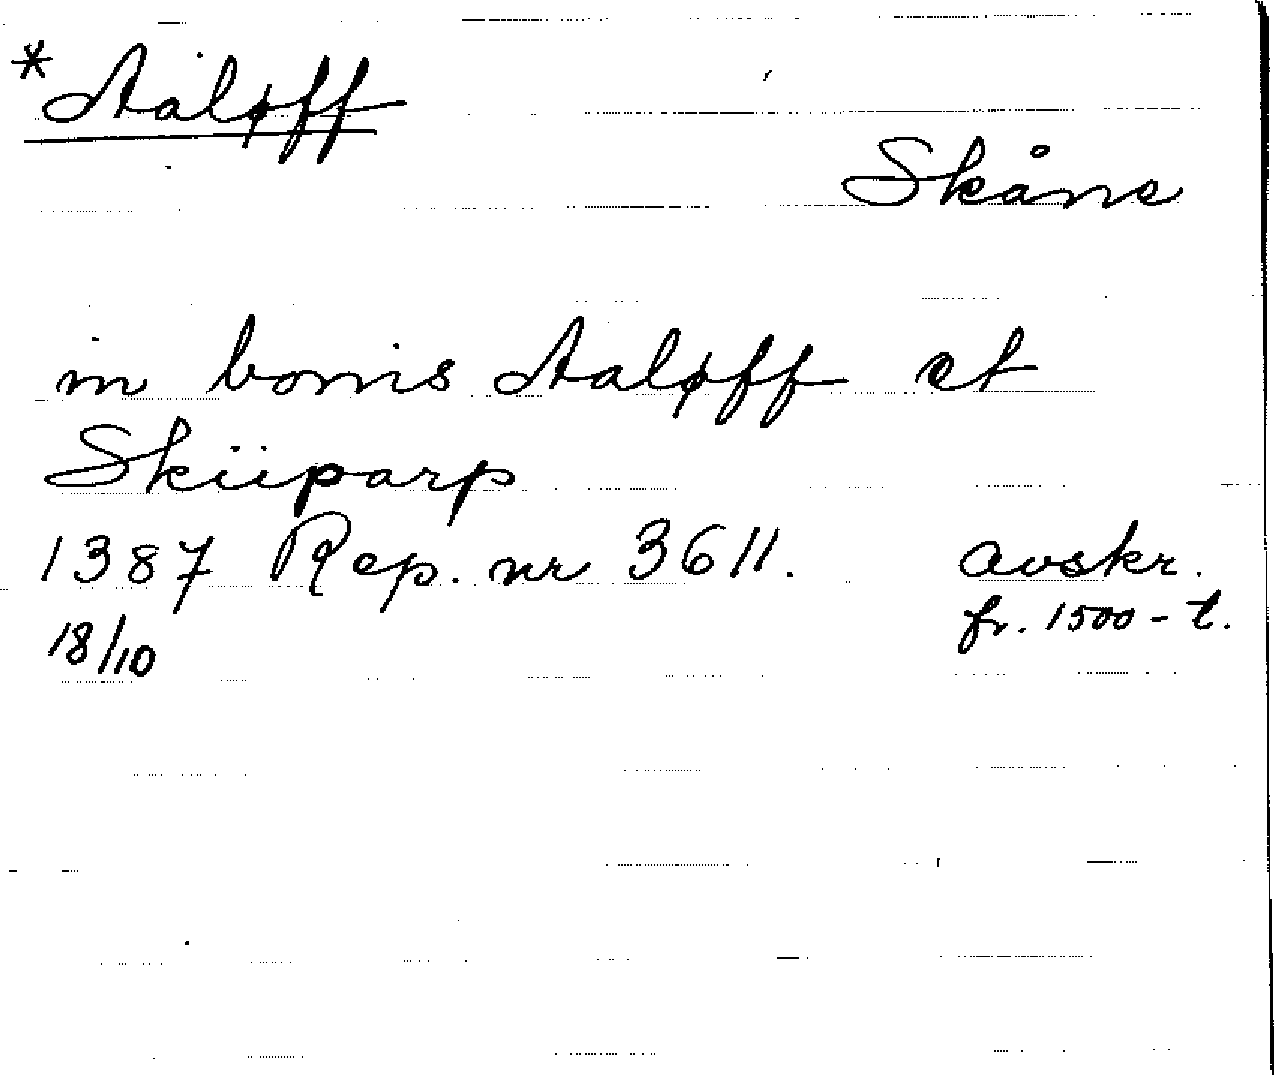 *Aaløff
Skåne
in bonis Aaløff et
Skiiparp
1387 Rep. nr 3611. avskr.
18/10 fr. 1500-t.